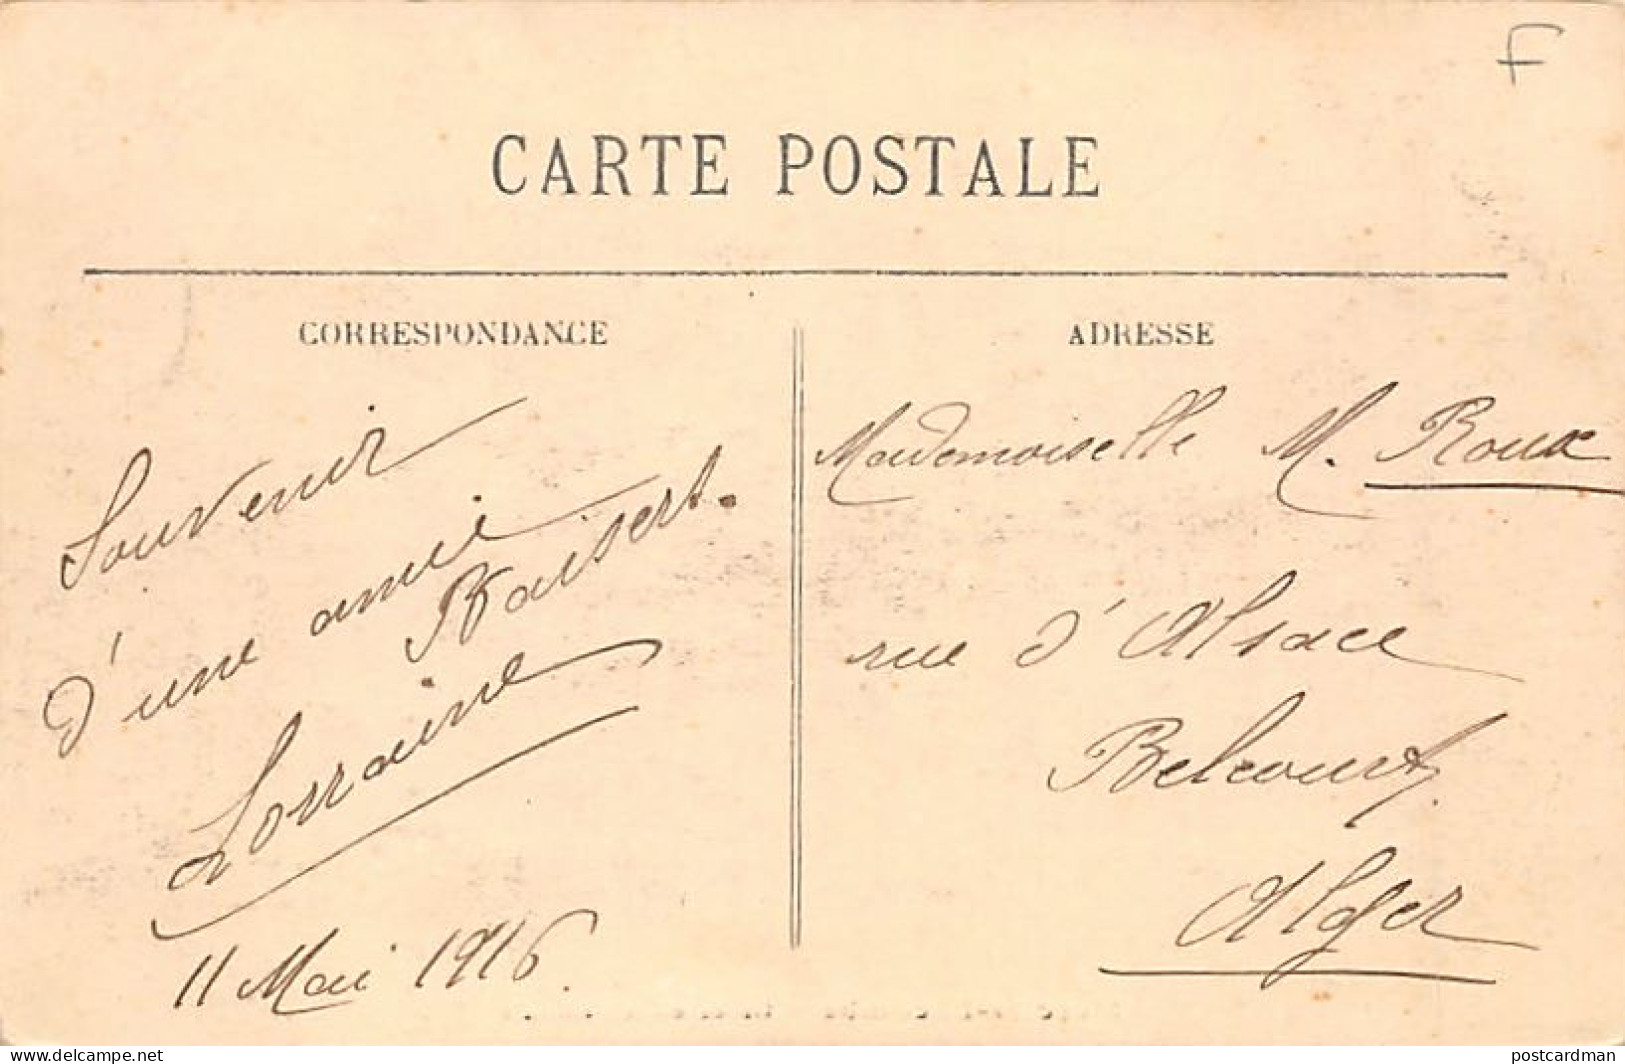 F
CARTE POSTALE
CORRESPONDANCE
Souvenir
d'une amie
Baisers.
Lorraine
11 Mai 1916.
ADRESSE
Mademoiselle M. Roux
rue d'Alsace
Belcourt
Alger
delcampe.net
postcardman